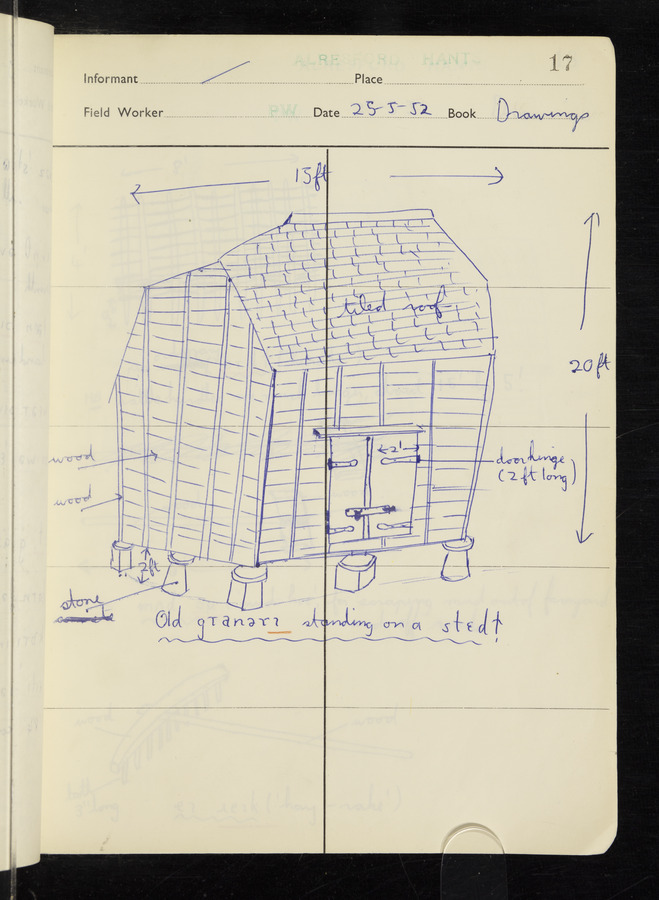 17
Informant Place
Field Worker Date 25-5-52 Book Drawings
15ft
tiled roof
20ft
2'
door hinge
(2 ft long)
wood
wood
2ft
stone
Old granary standing on a sted!